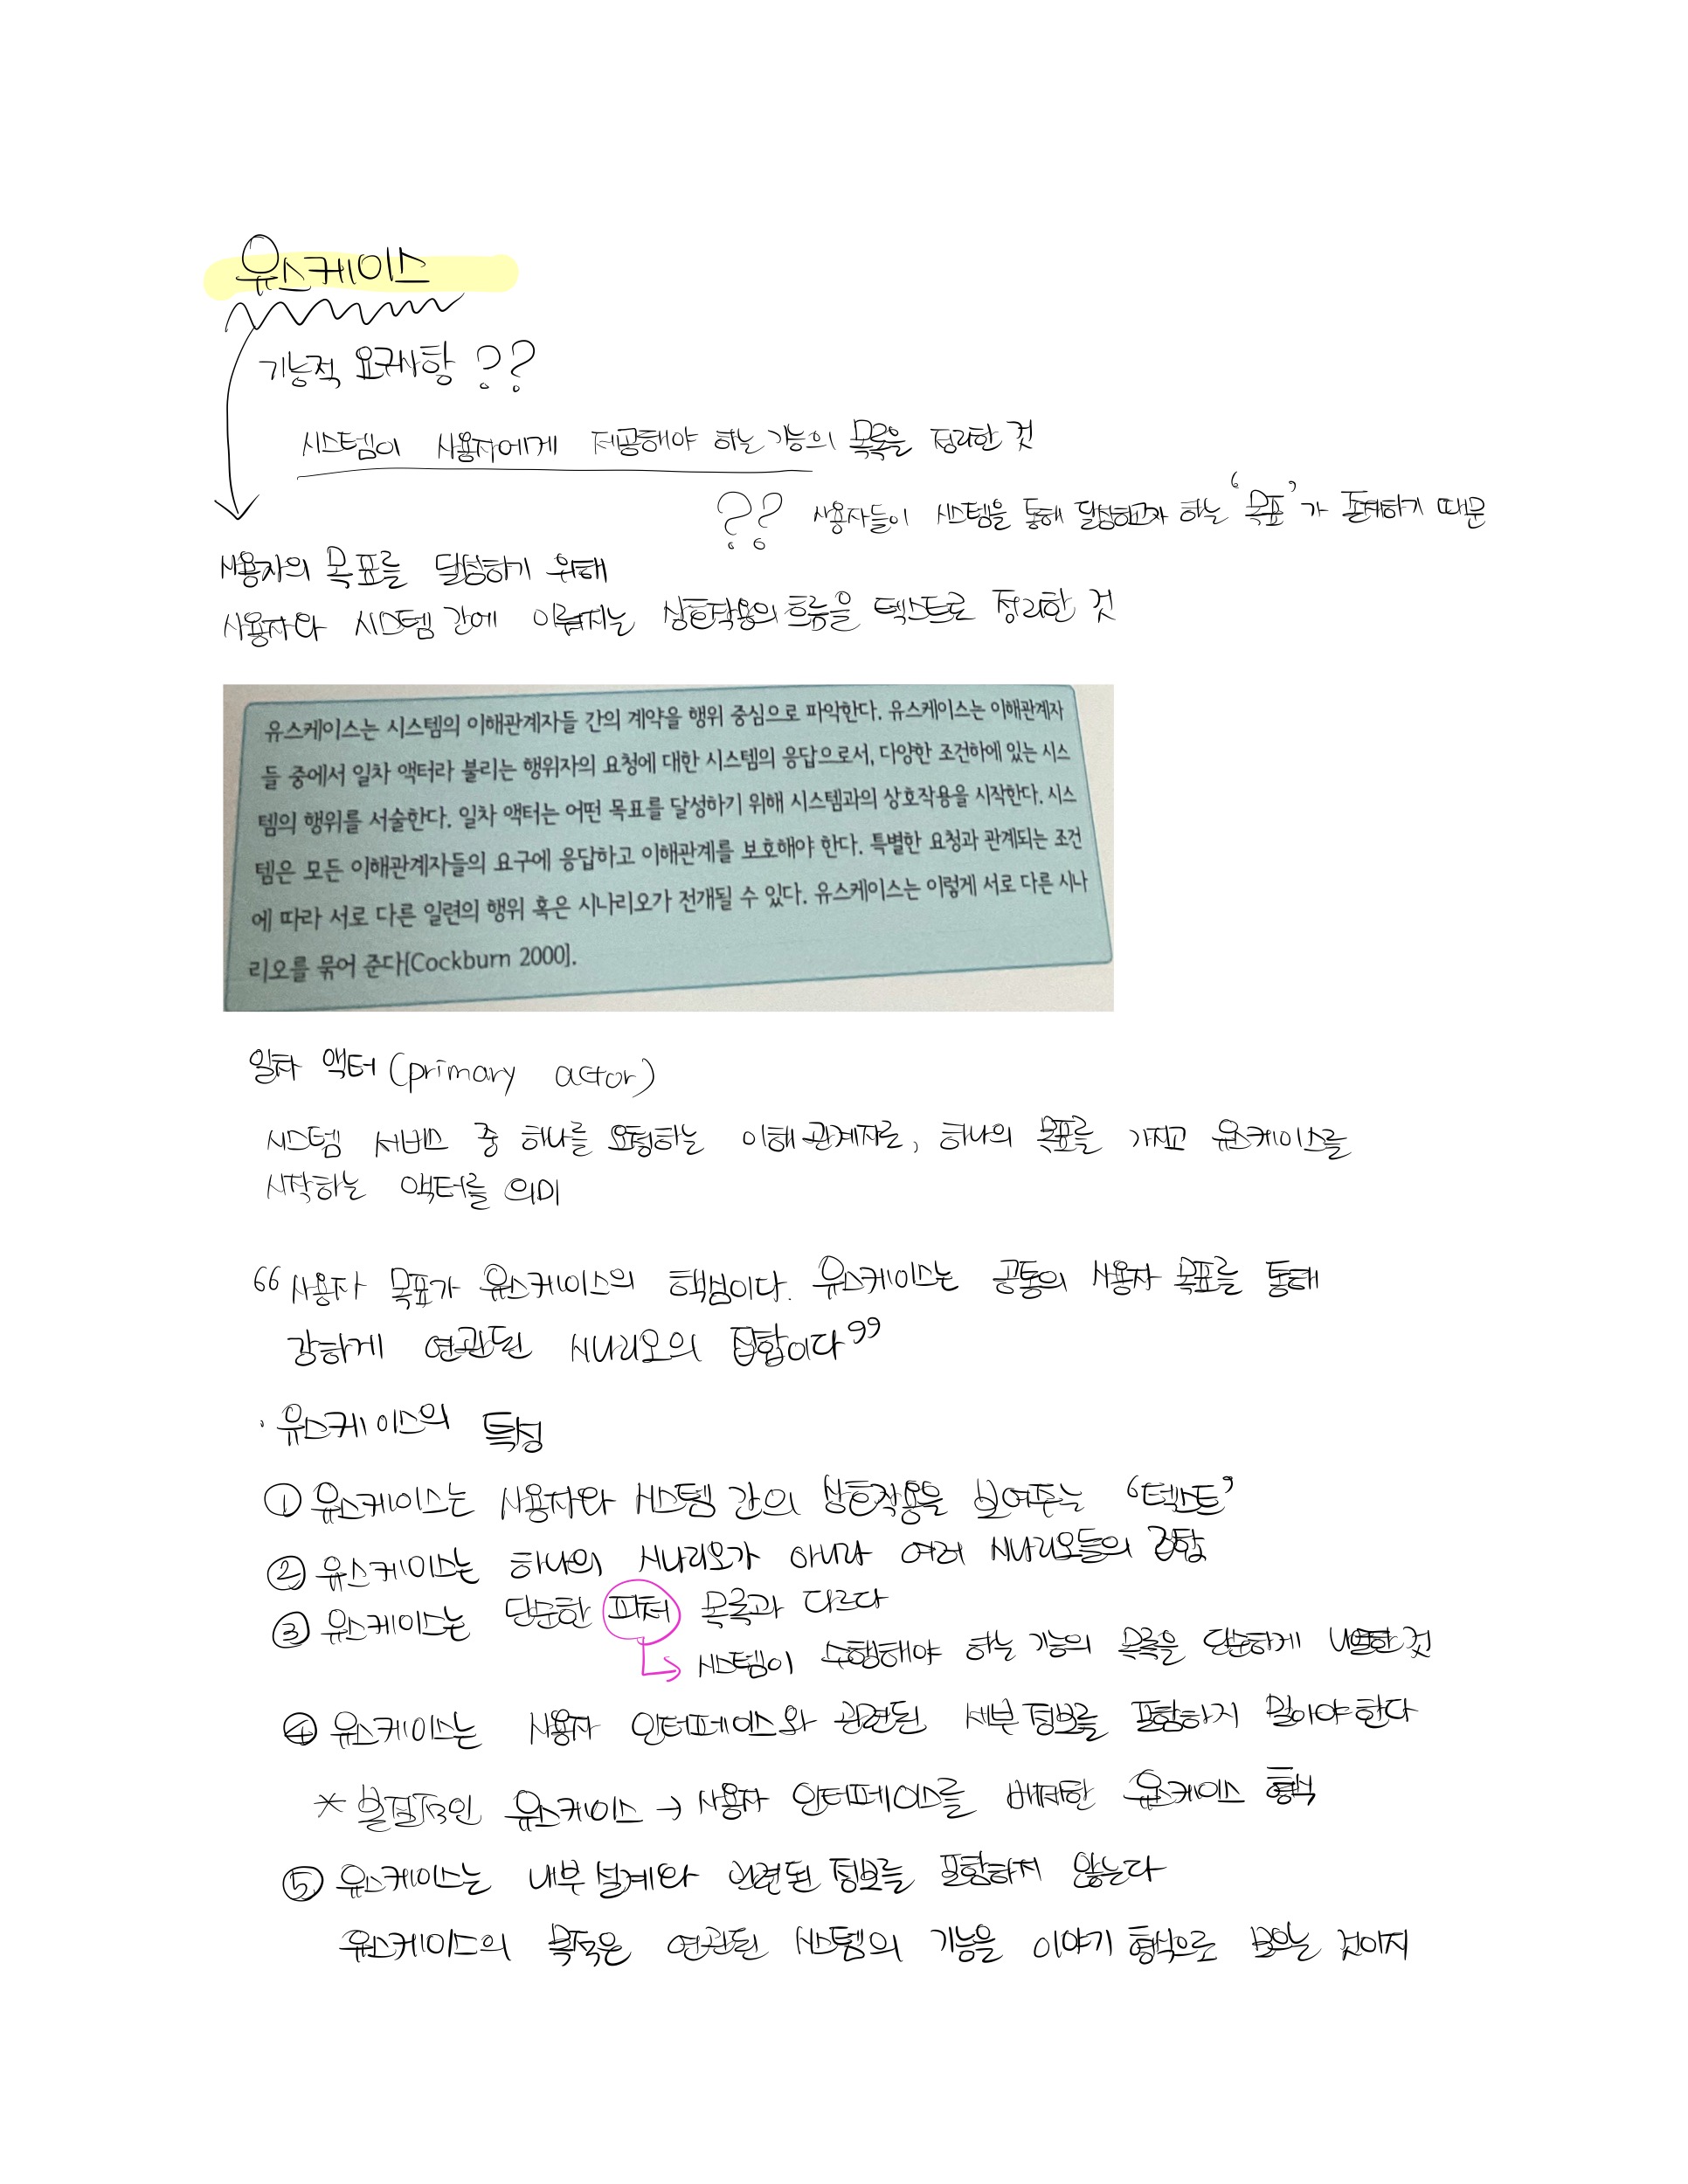 유스케이스
기능적 요구사항 ??
시스템이 사용자에게 제공해야 하는 기능의 목록을 정리한 것
?? 사용자들이 시스템을 통해 달성하고자 하는 '목표'가 존재하기 때문
사용자의 목표를 달성하기 위해
사용자와 시스템 간에 이뤄지는 상호작용의 흐름을 텍스트로 정리한 것
유스케이스는 시스템의 이해관계자들 간의 계약을 행위 중심으로 파악한다. 유스케이스는 이해관계자
들 중에서 일차 액터라 불리는 행위자의 요청에 대한 시스템의 응답으로서, 다양한 조건하에 있는 시스
템의 행위를 서술한다. 일차 액터는 어떤 목표를 달성하기 위해 시스템과의 상호작용을 시작한다. 시스
템은 모든 이해관계자들의 요구에 응답하고 이해관계를 보호해야 한다. 특별한 요청과 관계되는 조건
에 따라 서로 다른 일련의 행위 혹은 시나리오가 전개될 수 있다. 유스케이스는 이렇게 서로 다른 시나
리오를 묶어 준다[Cockburn 2000].
일차 액터 (primary actor)
시스템 서비스 중 하나를 요청하는 이해관계자로, 하나의 목표를 가지고 유스케이스를
시작하는 액터를 의미
“사용자 목표가 유스케이스의 핵심이다. 유스케이스는 공통의 사용자 목표를 통해
강하게 연관된 시나리오의 집합이다”
· 유스케이스의 특성
① 유스케이스는 사용자와 시스템 간의 상호작용을 보여주는 ‘텍스트’
② 유스케이스는 하나의 시나리오가 아니라 여러 시나리오들의 집합
③ 유스케이스는 단순한 피처 목록과 다르다
시스템이 수행해야 하는 기능의 목록을 단순하게 나열한 것
④ 유스케이스는 사용자 인터페이스와 관련된 세부 정보를 포함하지 말아야 한다
* 본질적인 유스케이스 → 사용자 인터페이스를 배제한 유스케이스 형식
⑤ 유스케이스는 내부 설계와 관련된 정보를 포함하지 않는다
유스케이스의 목적은 연관된 시스템의 기능을 이야기 형식으로 모으는 것이지